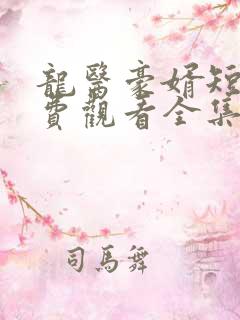 龍醫豪婿短
費觀看全集
司馬舞